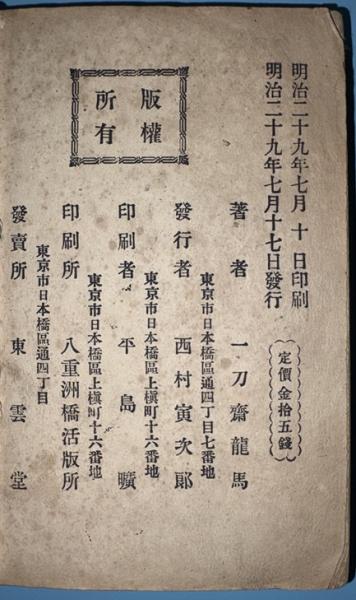 明治二十九年七月 十 日印刷
明治二十九年七月十七日發行
定價金拾五錢
著者 一刀齋龍馬
東京市日本橋區通四丁目七番地
發行者 西村寅次郎
東京市日本橋區上槇町十六番地
印刷者 平島曠
東京市日本橋區上槇町十六番地
印刷所 八重洲橋活版所
東京市日本橋區通四丁目
發賣所 東雲堂
版權
所有